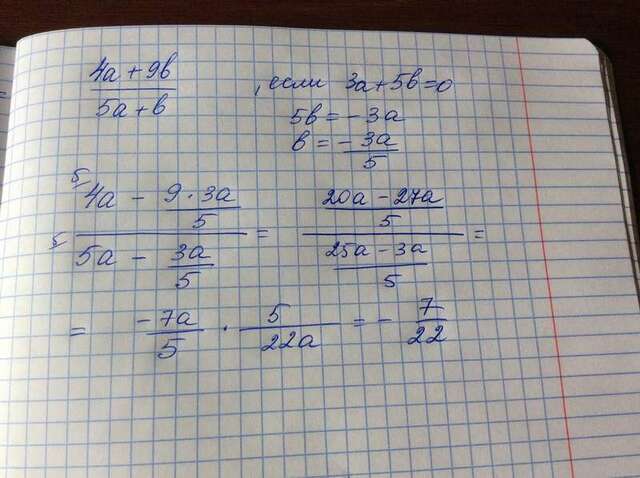 (4a + 9b)/(5a + b) , если 3a + 5b = 0
5b = - 3a
b = - 3a/5
(⁵⁄4a - 9 · 3a/5)/(⁵⁄5a - 3a/5) = ((20a - 27a)/5)/((25a - 3a)/5) =
= -7a/5 · 5/22a = - 7/22